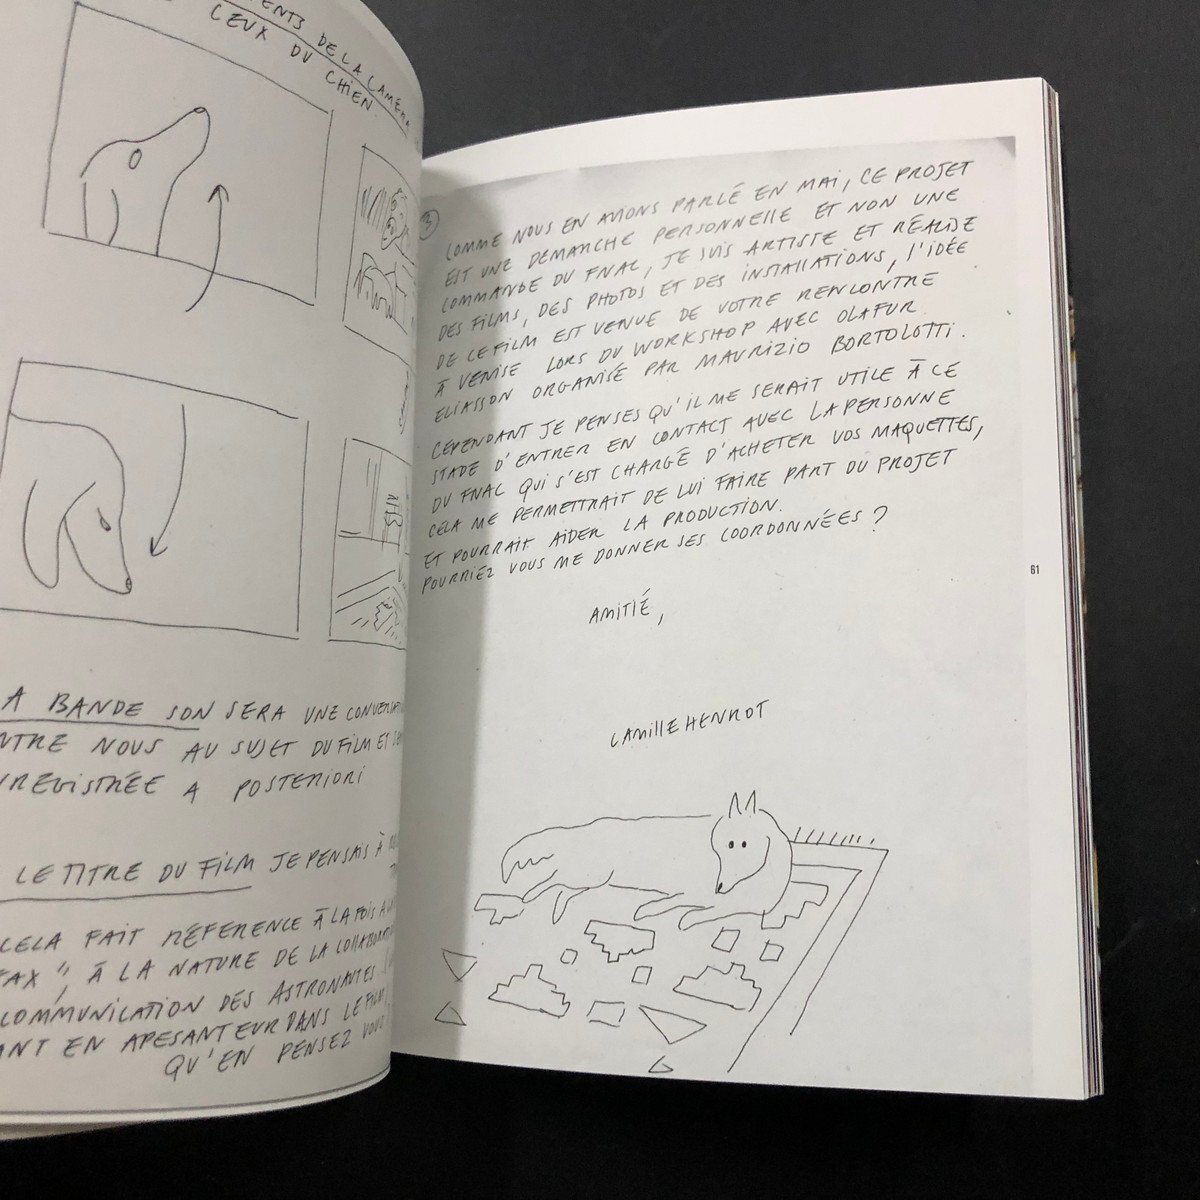 DE LA CAMÉRA
CEUX DU
CHIEN
A BANDE SON SERA UNE
NTRE NOUS AU SUJET DU FILM ET
NREGISTRÉE A POSTERIORI
LE TITRE DU FILM JE PENSAIS À
CELA FAIT RÉFÉRENCE À LA FOIS
FAX", À LA NATURE DE LA
COMMUNICATION DES ASTRONAUTES
ANT EN APESANTEUR DANS LE FILM
QU'EN PENSEZ VOUS
3
COMME NOUS EN AVIONS PARLÉ EN MAI, CE PROJET
EST UNE DÉMARCHE PERSONNELLE ET NON UNE
COMMANDE DU FNAC, JE SUIS ARTISTE ET RÉALISE
DES FILMS, DES PHOTOS ET DES INSTALLATIONS, L'IDÉE
DE CE FILM EST VENUE DE VOTRE RENCONTRE
À VENISE LORS DU WORKSHOP AVEC OLAFUR
ELIASSON ORGANISÉ PAR MAURIZIO BORTOLOTTI.
CEPENDANT JE PENSES QU'IL ME SERAIT UTILE À CE
STADE D'ENTRER EN CONTACT AVEC LA PERSONNE
DU FNAC QUI S'EST CHARGÉ D'ACHETER VOS MAQUETTES,
CELA ME PERMETTRAIT DE LUI FAIRE PART DU PROJET
ET POURRAIT AIDER LA PRODUCTION.
POURRIEZ VOUS ME DONNER SES COORDONNÉES ?
AMITIÉ,
CAMILLE HENROT
61